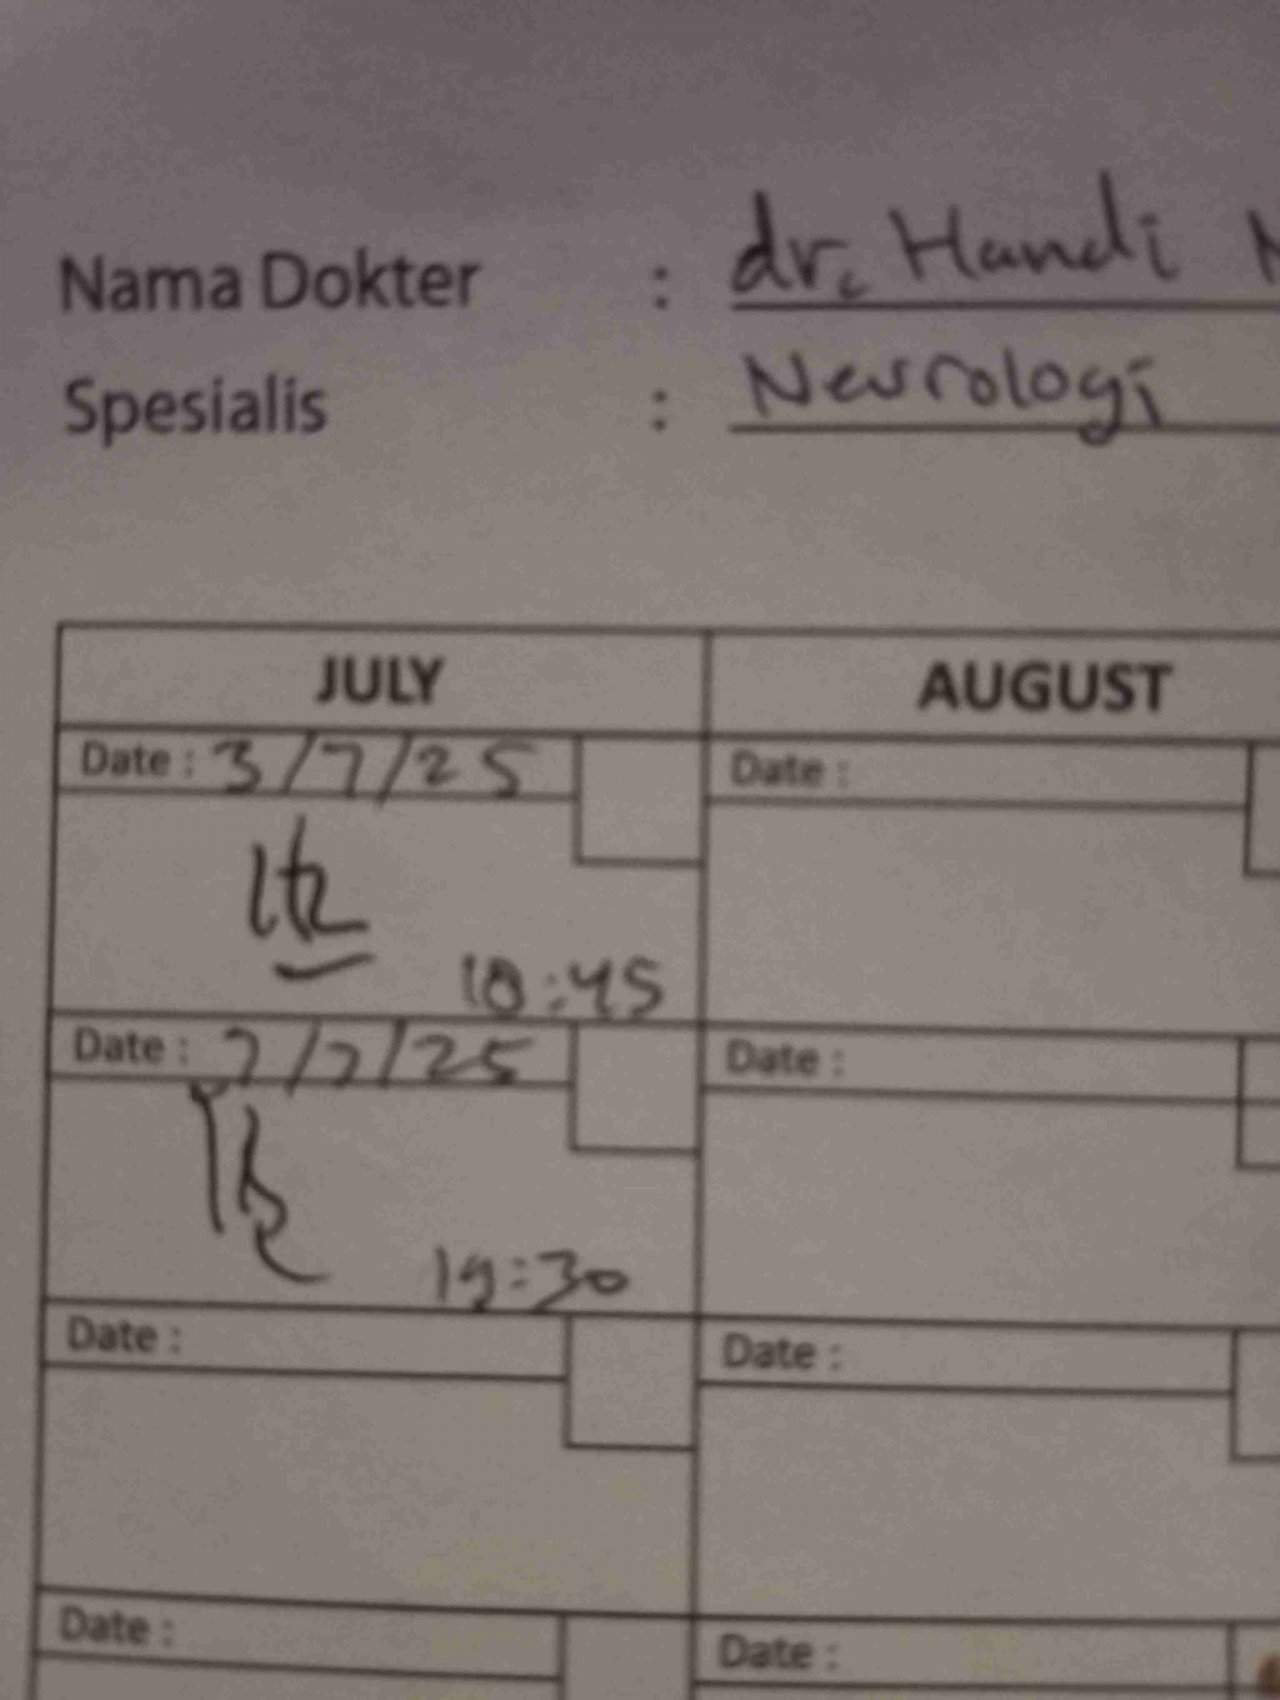 Nama Dokter : dr. Handi
Spesialis : Neurologi
JULY AUGUST
Date : 3/7/25 Date :
10:45
Date : 7/7/25 Date :
19:30
Date : Date :
Date : Date :